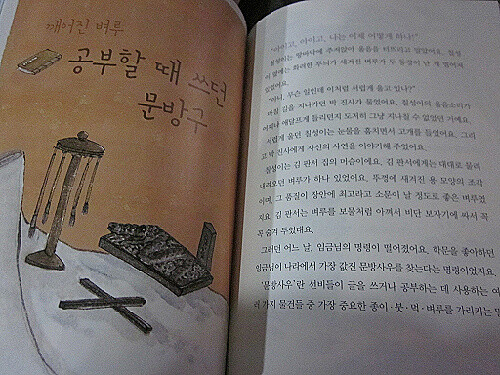 깨어진 벼루
공부할 때 쓰던
문방구
"아이고, 아이고, 나는 이제 어떻게 하나!"
있었어요.
"아니, 무슨 일인데 이처럼 서럽게 울고 있나?"
마침 길을 지나가던 박 진사가 물었어요. 칠성이의 울음소리가
어찌나 애달프게 들리던지 도저히 그냥 지나칠 수 없었던 거예요.
서럽게 울던 칠성이는 눈물을 훔치면서 고개를 들었어요. 그리
고 박 진사에게 자신의 사연을 이야기해 주었어요.
칠성이는 김 판서 집의 마슴이에요. 김 판서에게는 대대로 물려
내려오던 벼루가 하나 있었어요. 뚜껑에 새겨진 용 모양의 조각
이며, 그 품질이 장안에 최고라고 소문이 날 정도로 좋은 벼루였
지요. 김 판서는 벼루를 보물처럼 아껴서 비단 보자기에 싸서 꼭
꼭 숨겨 두었대요.
그러던 어느 날, 임금님의 명령이 떨어졌어요. 학문을 좋아하던
임금님이 나라에서 가장 값진 문방사우를 찾는다는 명령이었지요.
'문방사우'란 선비들이 글을 쓰거나 공부하는 데 사용하는 여
러 가지 물건들 중 가장 중요한 종이·붓·먹·벼루를 가리키는 말